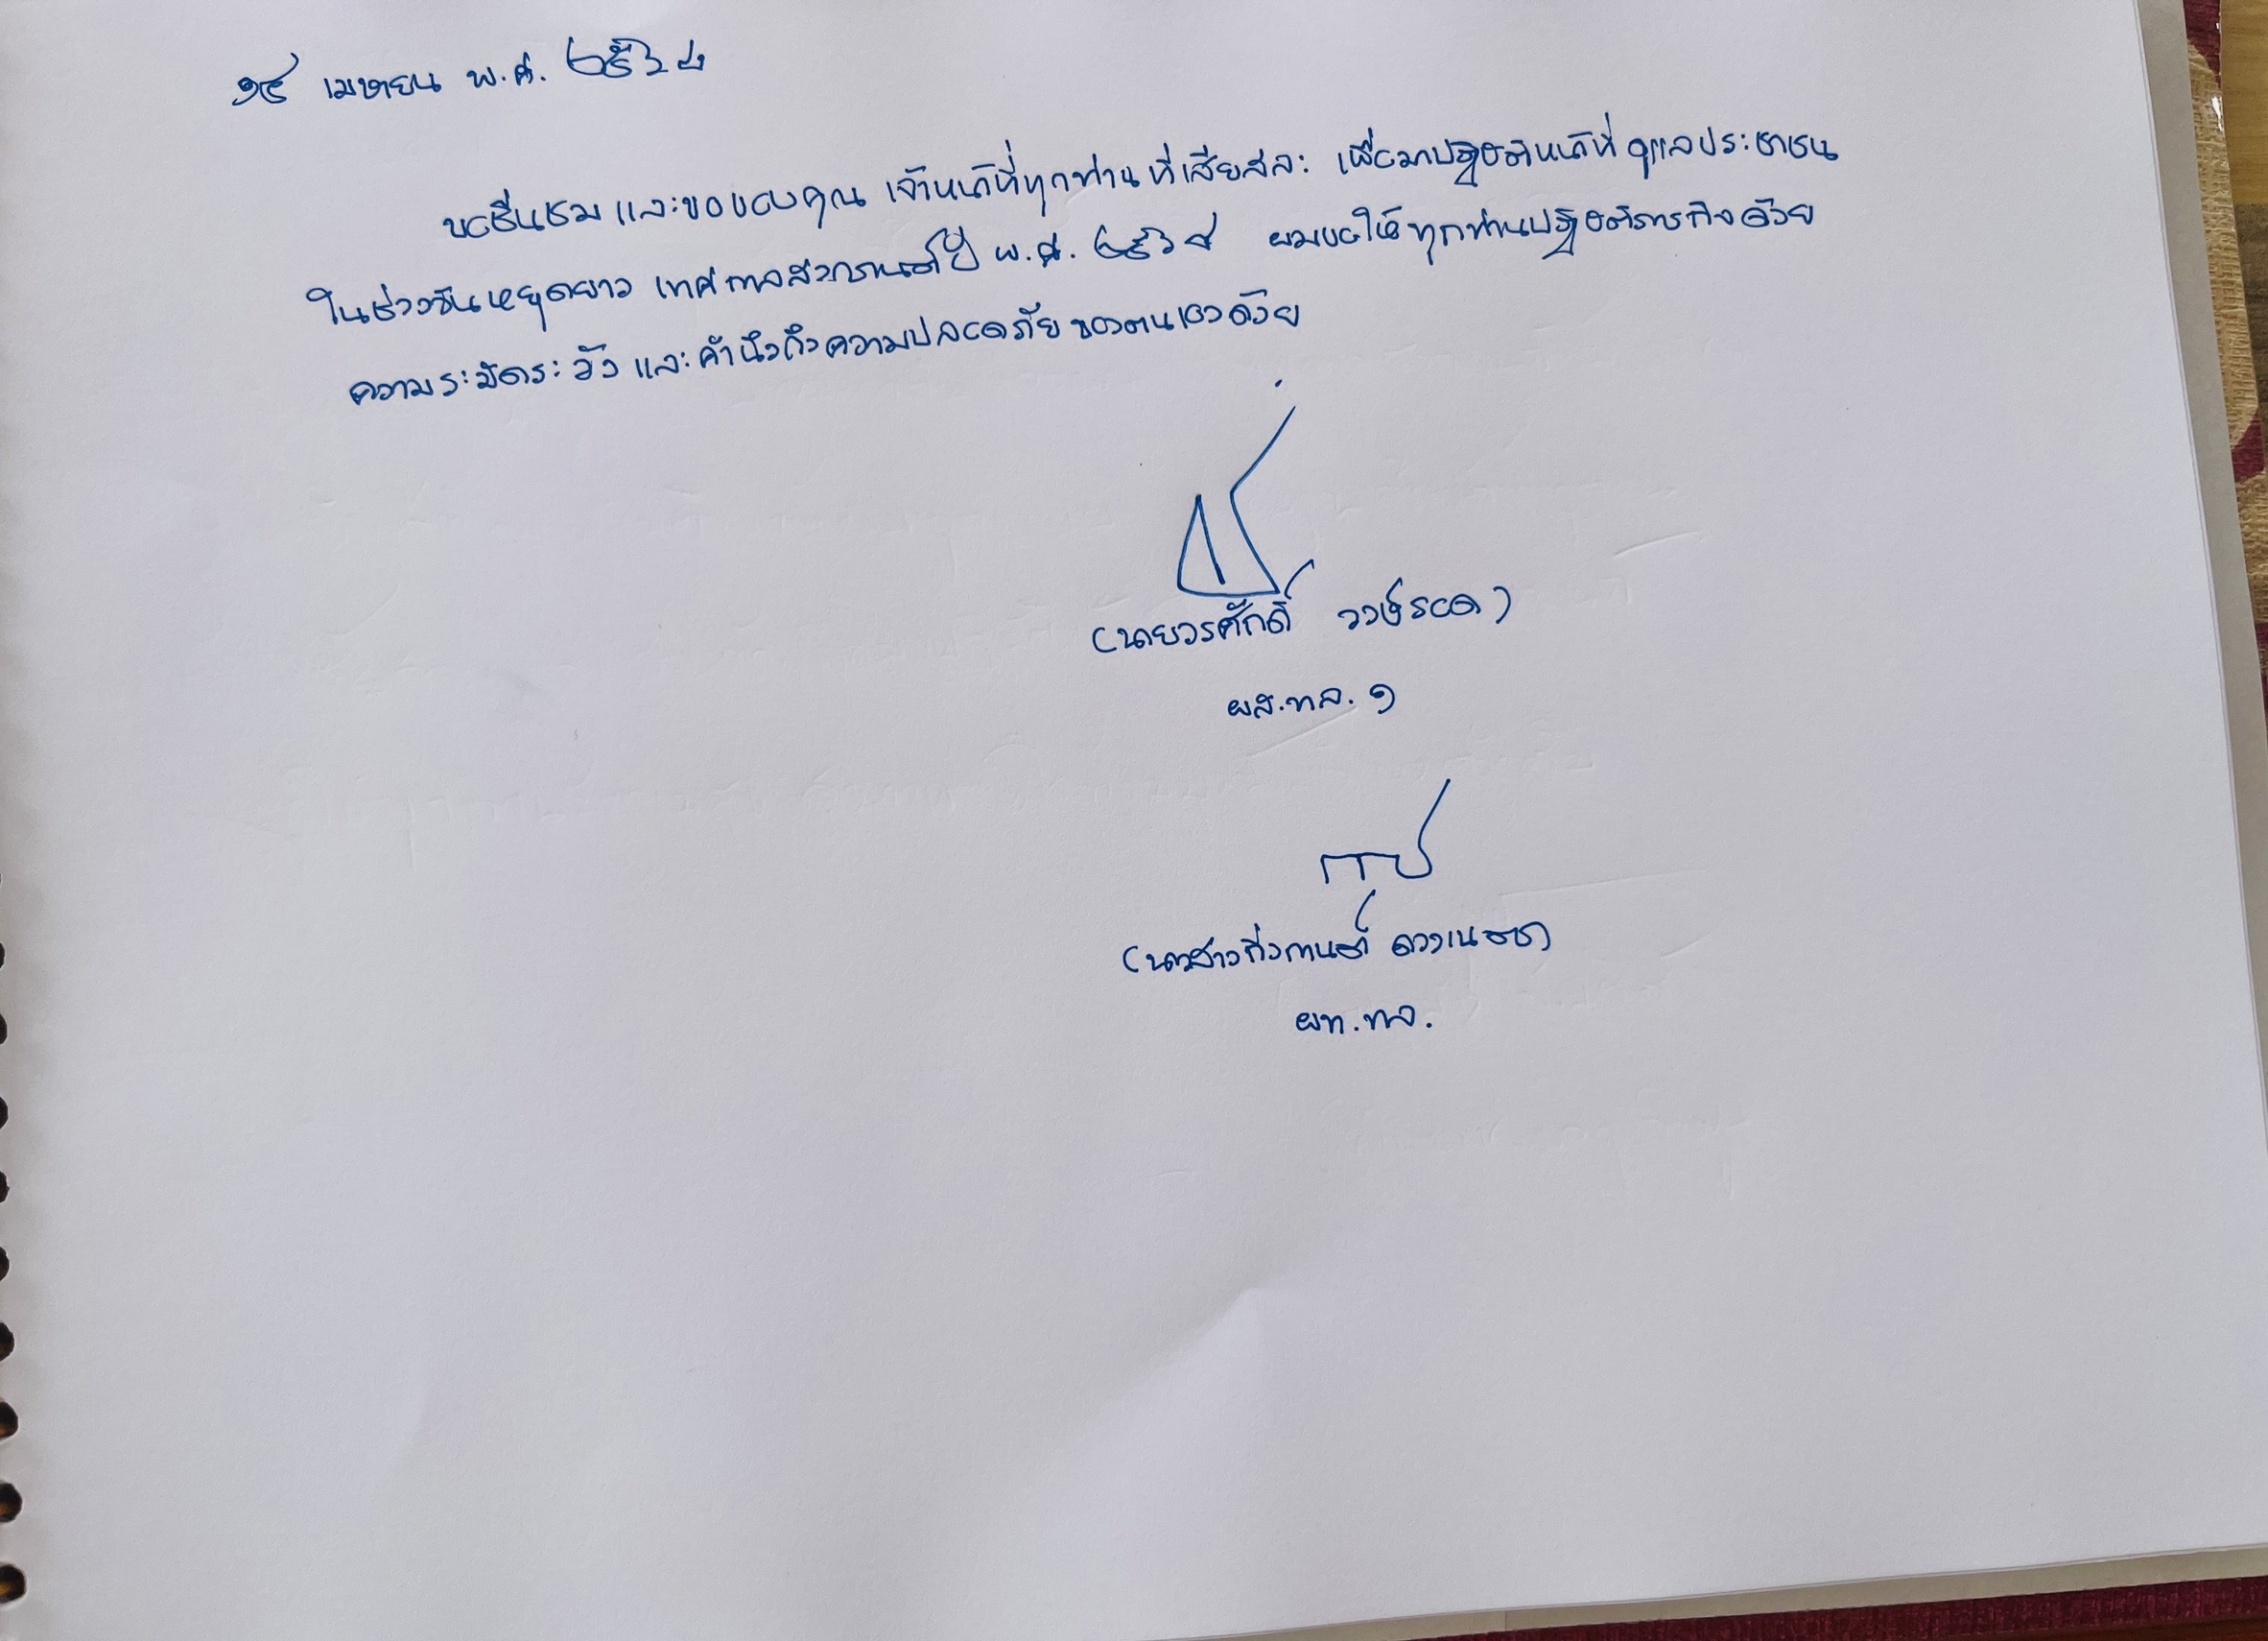 ๑๔ เมษายน พ.ศ. ๒๕๖๘
ขอชื่นชม และขอขอบคุณ เจ้าหน้าที่ทุกท่าน ที่เสียสละ เพื่อมาปฏิบัติหน้าที่ ดูแลประชาชน
ในช่วงวันหยุดยาว เทศกาลสงกรานต์ปี พ.ศ. ๒๕๖๘ ผมขอให้ทุกท่านปฏิบัติภารกิจด้วย
ความระมัดระวัง และคำนึงถึงความปลอดภัย ของตนเองด้วย
(นายวรศักดิ์ วงษ์รอด)
ผส.ทล. ๑
(นางสาวกิ่งกานต์ ดวงเนตร)
ผท.ทล.